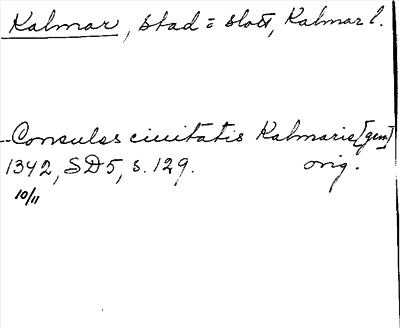 Kalmar, stad = slott, Kalmar l.
--Consules ciuitatis Kalmarie [gen]
1342, SD5, s. 129. orig.
10/11